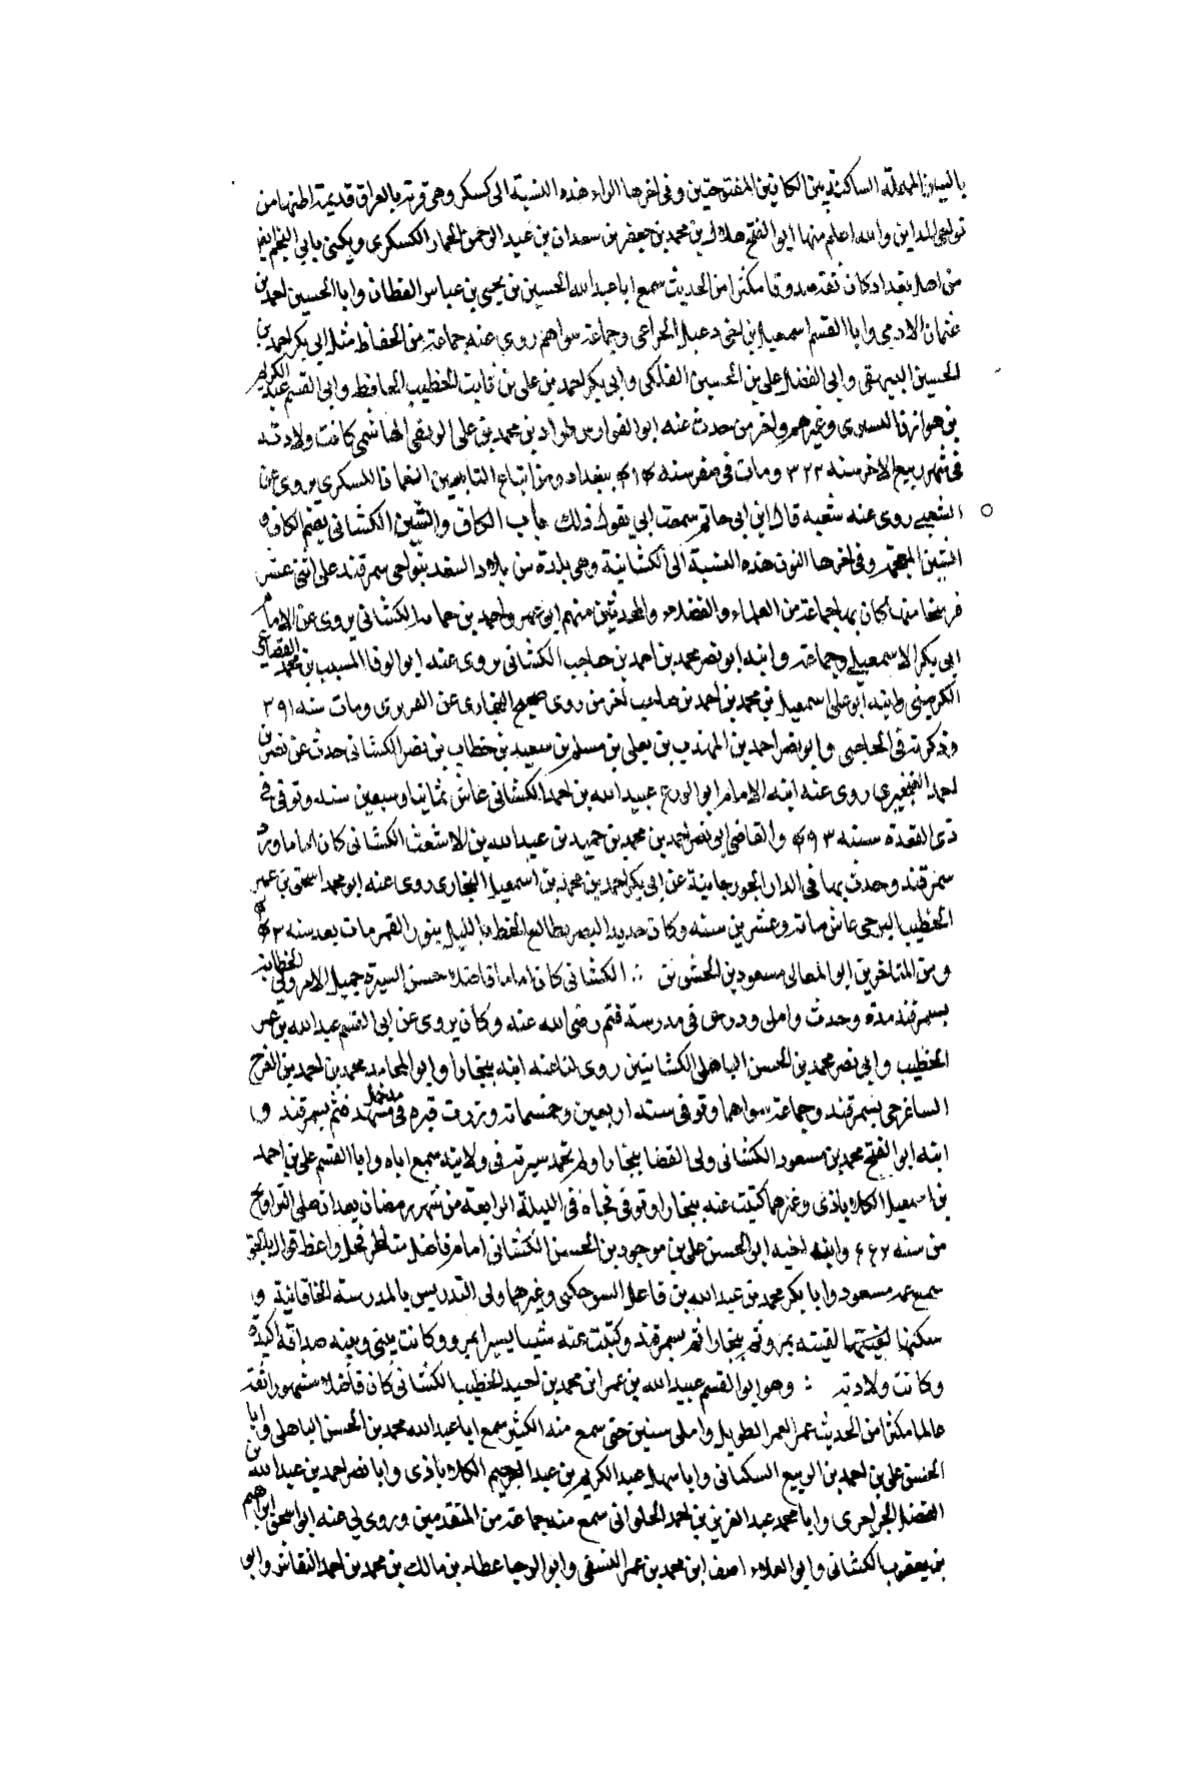 بالسين المهملة الساكنة بين الكافين المفتوحتين وفي اخرها الراء هذه النسبة الى كسكر وهي قرية بالعراق قديمة اظنها من
نواحي المداين والله اعلم منها ابو الفتح هلال بن محمد بن جعفر بن سعدان بن عبد الرحمن الحفار الكسكري ويكنى بابي النجم ايضا
من اهل بغداد كان ثقة صدوقا مكثرا من الحديث سمع ابا عبد الله الحسين بن يحيى بن عياس القطان وابا الحسين احمد بن
عثمان الادمي وابا القسم اسمعيل بن اخي دعبل الخزاعي وجماعة سواهم روى عنه جماعة من الحفاظ مثل ابي بكر احمد بن
الحسين البيهقي وابي الفضل علي بن الحسين الفلكي وابي بكر احمد بن علي بن ثابت الخطيب الحافظ وابي القسم عبد الكريم
بن هوازن القشيري وغيرهم واخر من حدث عنه ابو الفوارس طراد بن محمد بن علي الزينبي الهاشمي كانت ولادته
في شهر ربيع الاخر سنه ٣٢٢ ومات في صفر سنه ۴١۴ ببغداد ومن اتباع التابعين النعمان الكسكري يروى عن
الشعبي روى عنه شعبه قال ابن ابي حاتم سمعت ابي يقول ذلك باب الكاف والشين الكشاني بضم الكاف و
الشين المعجمه وفي اخرها النون هذه النسبة الى الكشانية وهي بلدة من بلاد السغد بنواحي سمرقند على اثنى عشر
فرسخا منها كان بها جماعة من العلماء والفضلاء والمحدثين منهم ابو عمرو احمد بن حاجب الكشاني يروى عن الامام
ابي بكر الاسمعيلي وجماعة وابنه ابو نصر محمد بن احمد بن حاجب الكشاني يروى عنه ابو الوفا المسيب بن محمد القضاعي
الكرميني وابنه ابو علي اسمعيل بن محمد بن احمد بن حاجب اخر من روى صحيح البخاري عن الفربري ومات سنه ٣٩١
وذكرته في الحاجبي وابو نصر احمد بن المهذب بن يعلى بن مسلم بن سعيد بن خطاب بن نصر الكشاني حدث عن نصر بن
احمد روى عنه ابنه الامام ابو الورع عبيد الله بن احمد الكشاني عاش ثمانيا وسبعين سنه وتوفي في
ذي القعدة سنه ۴٩٣ والقاضي ابو نصر احمد بن محمد بن حميد بن عبد الله بن الاشعث الكشاني كان اماما ورد
سمرقند وحدث بها في الدار الجوزجانية عن ابي بكر احمد بن محمد بن اسمعيل البخاري روى عنه ابو محمد اسحق بن عمر
الخطيب البرجي عاش مائه وعشرين سنه وكان حديد البصر يطالع الخط بالليل بنور القمر مات بعد سنه
ومن المتاخرين ابو المعالي مسعود بن الحسن بن ∴ الكشاني كان اماما فاضلا حسن السيرة جميل الامر ولي الخطابة
بسمرقند مدة وحدث واملى ودرس في مدرسة قثم رضي الله عنه وكان يروى عن ابي القسم عبد الله بن عمر
الخطيب وابي نصر محمد بن الحسن الباهلي الكشانيين روى لنا عنه ابنه ببخارا وابو المحامد محمد بن احمد بن الفرج
الساغرجي بسمرقند وجماعة سواهما وتوفي سنه اربعين وخمسمائه وزرت قبره في مشهد قثم بسمرقند و
ابنه ابو الفتح محمد بن مسعود الكشاني ولي القضا ببخارا ولم تحمد سيرته في ولايته سمع اباه وابا القسم علي بن احمد
بن اسمعيل الكلاباذي وغيرهما كتبت عنه ببخارا وتوفي فجاه في الليلة الرابعة من شهر رمضان بعد ان صلى التراويح
من سنه وابن اخيه ابو الحسن علي بن موجود بن الحسن الكشاني امام فاضل مناظر فحل واعظ قوال بالحق
سمع عمه مسعود وابا بكر محمد بن عبد الله بن فاعل السرخكتي وغيرهما ولي التدريس بالمدرسة الخاقانية و
سكنها لقيته بمرو ثم ببخارا ثم بسمرقند وكتبت عنه شيئا يسيرا بمرو وكانت بيني وبينه صداقة اكيدة
وكانت ولادته : وهو ابو القسم عبيد الله بن عمر ابن محمد بن احيد الخطيب الكشاني كان فاضلا مشهورا ثقة
عالما مكثرا من الحديث عمر العمر الطويل واملى سنين حتى سمع منه الكثير سمع ابا عبد الله محمد بن الحسن الباهلي وابا
الحسن علي بن احمد بن الربيع السنكباثي وابا سهل عبد الكريم بن عبد الرحيم الكلاباذي وابا نصر احمد بن عبد الله بن
الفضل وابا محمد عبد العزيز بن احمد الحلواني سمع منه جماعة من المتقدمين وروى لي عنه ابو اسحق ابراهيم
بن يعقوب الكشاني وابو العلاء اصف ابن محمد بن عمر النسفي وابو الرجا عطاء بن مالك بن محمد بن احمد النقاش وابو